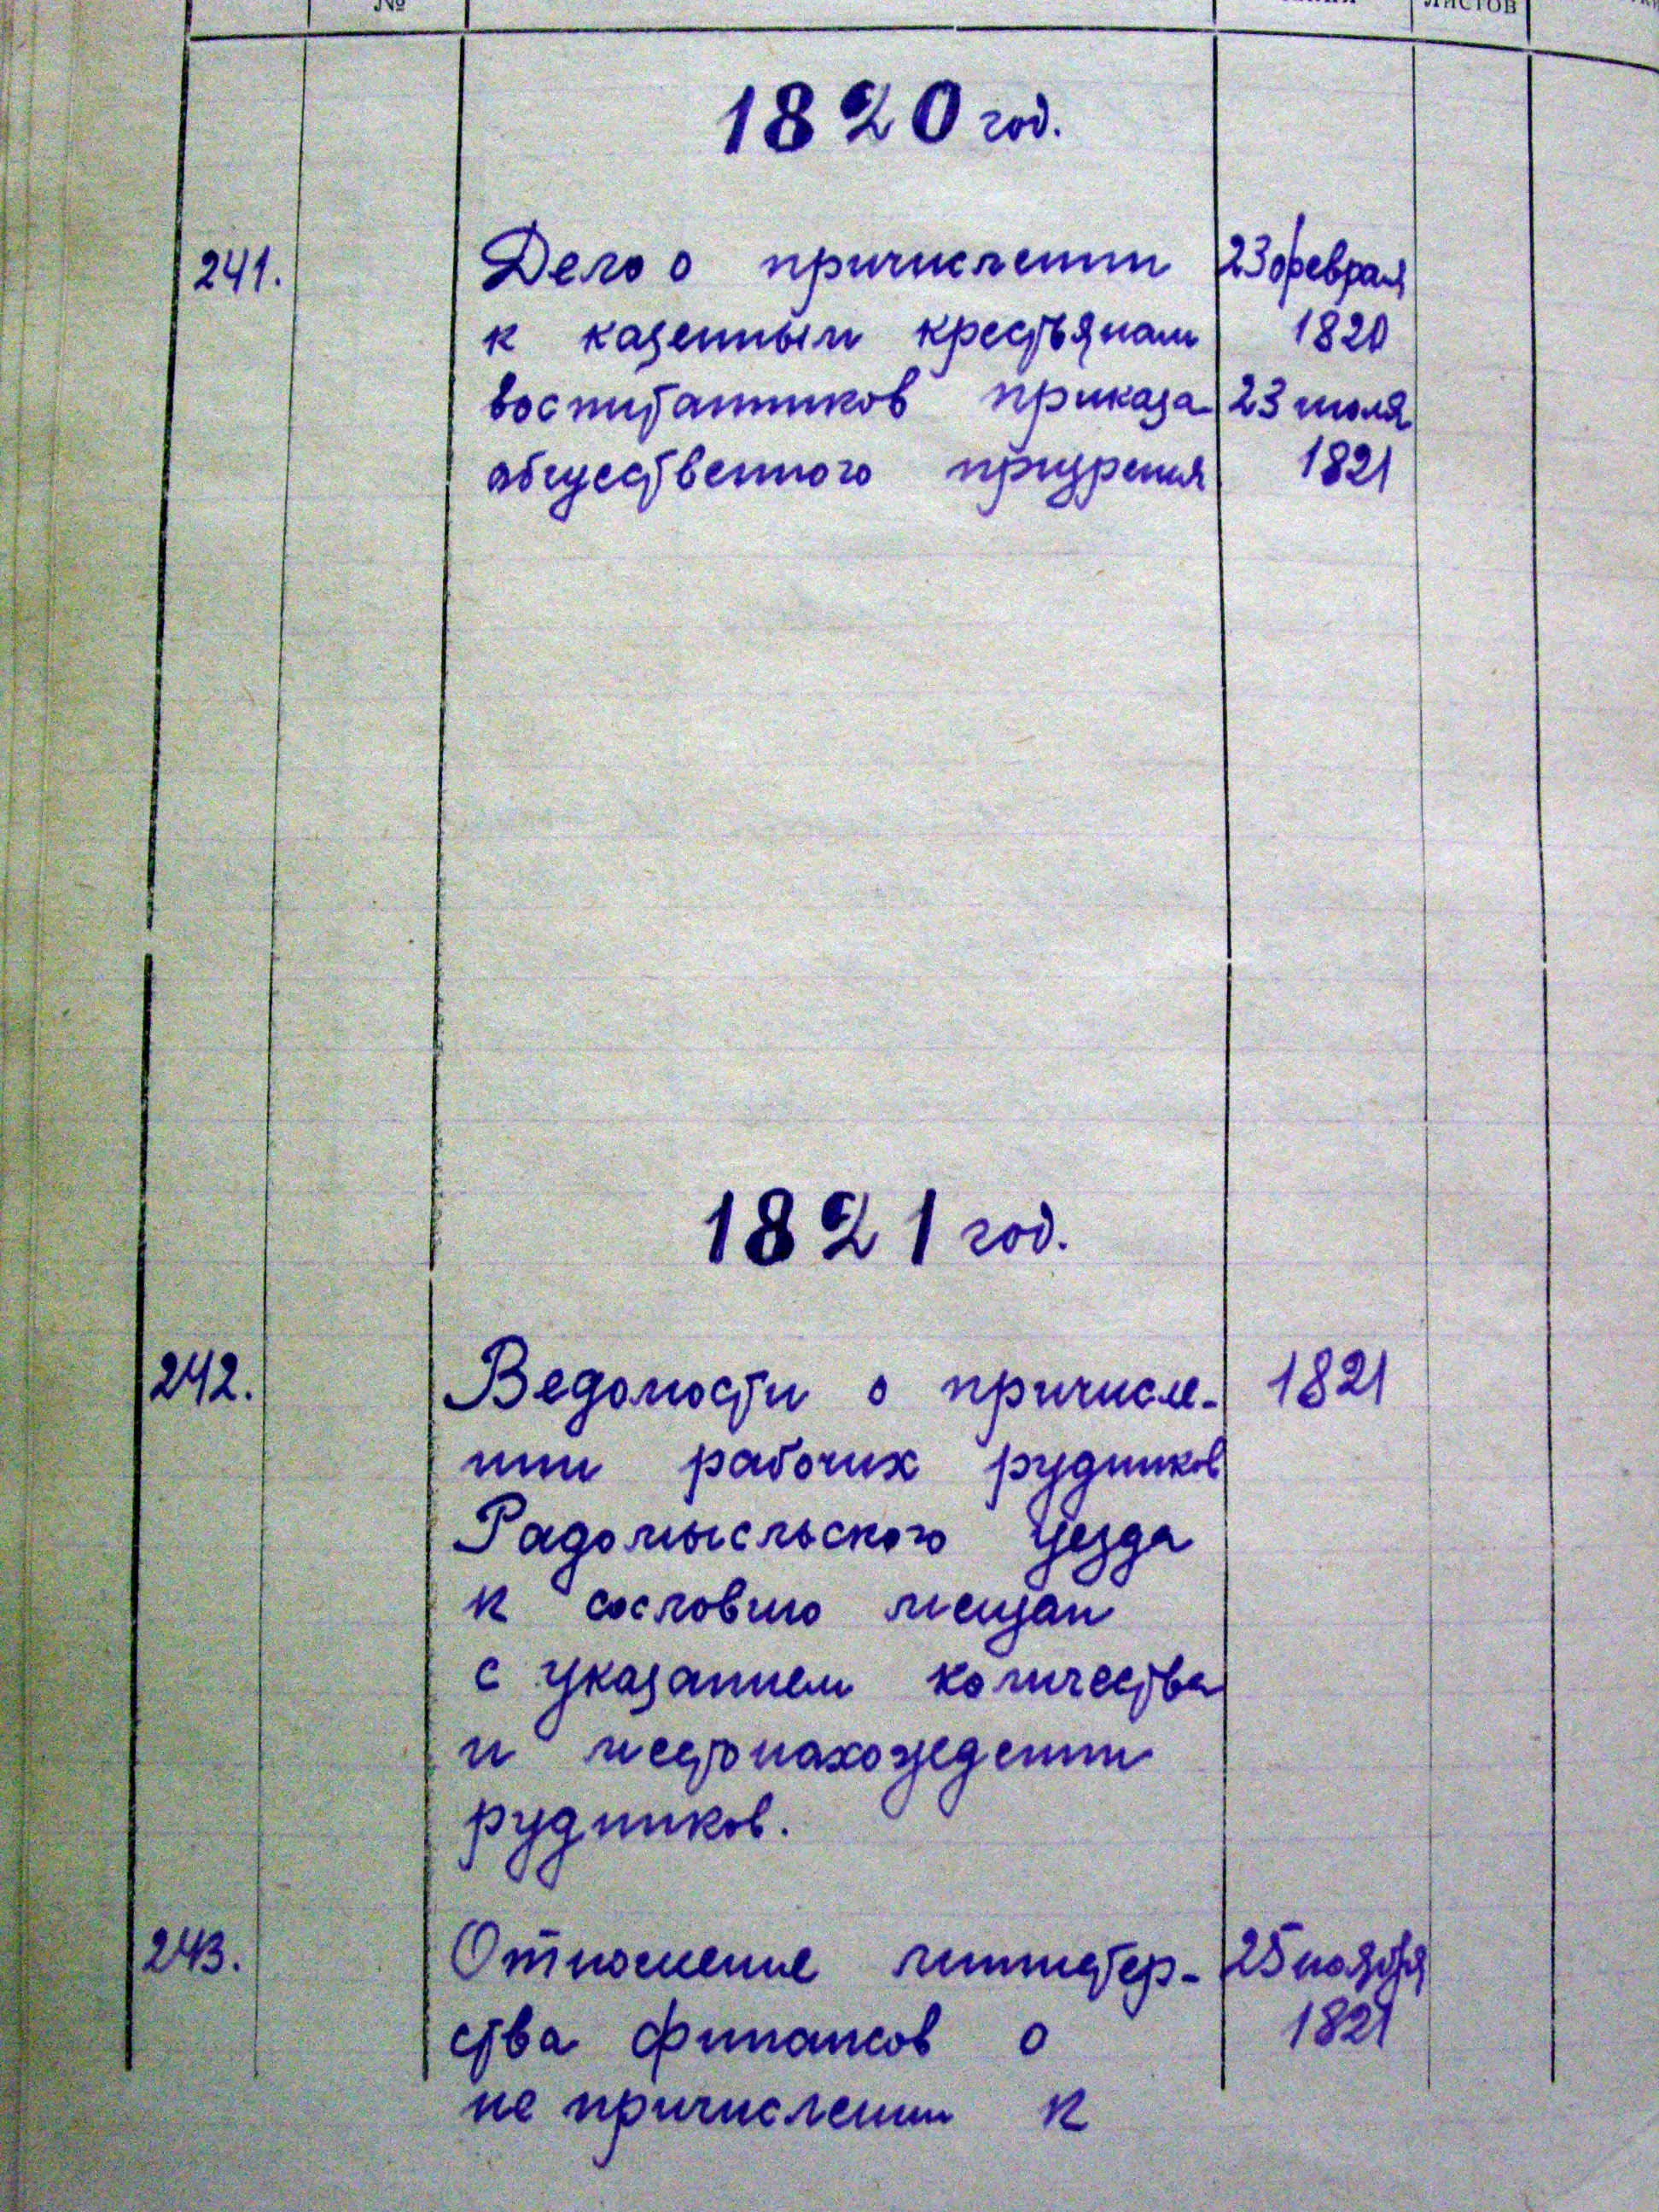 №
листов
1820 год.
241.
Дело о причислении
к казенным крестьянам
воспитанников приказа
общественного призрения
23 февраля
1820
23 июля
1821
1821 год.
242.
Ведомости о причисле-
нии рабочих рудников
Радомысльского уезда
к сословию мещан
с указанием количества
и местонахождении
рудников.
1821
243.
Отношение министер-
ства финансов о
не причислении к
25 ноября
1821